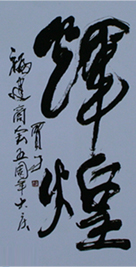 煇煌
福建商会五周年大庆